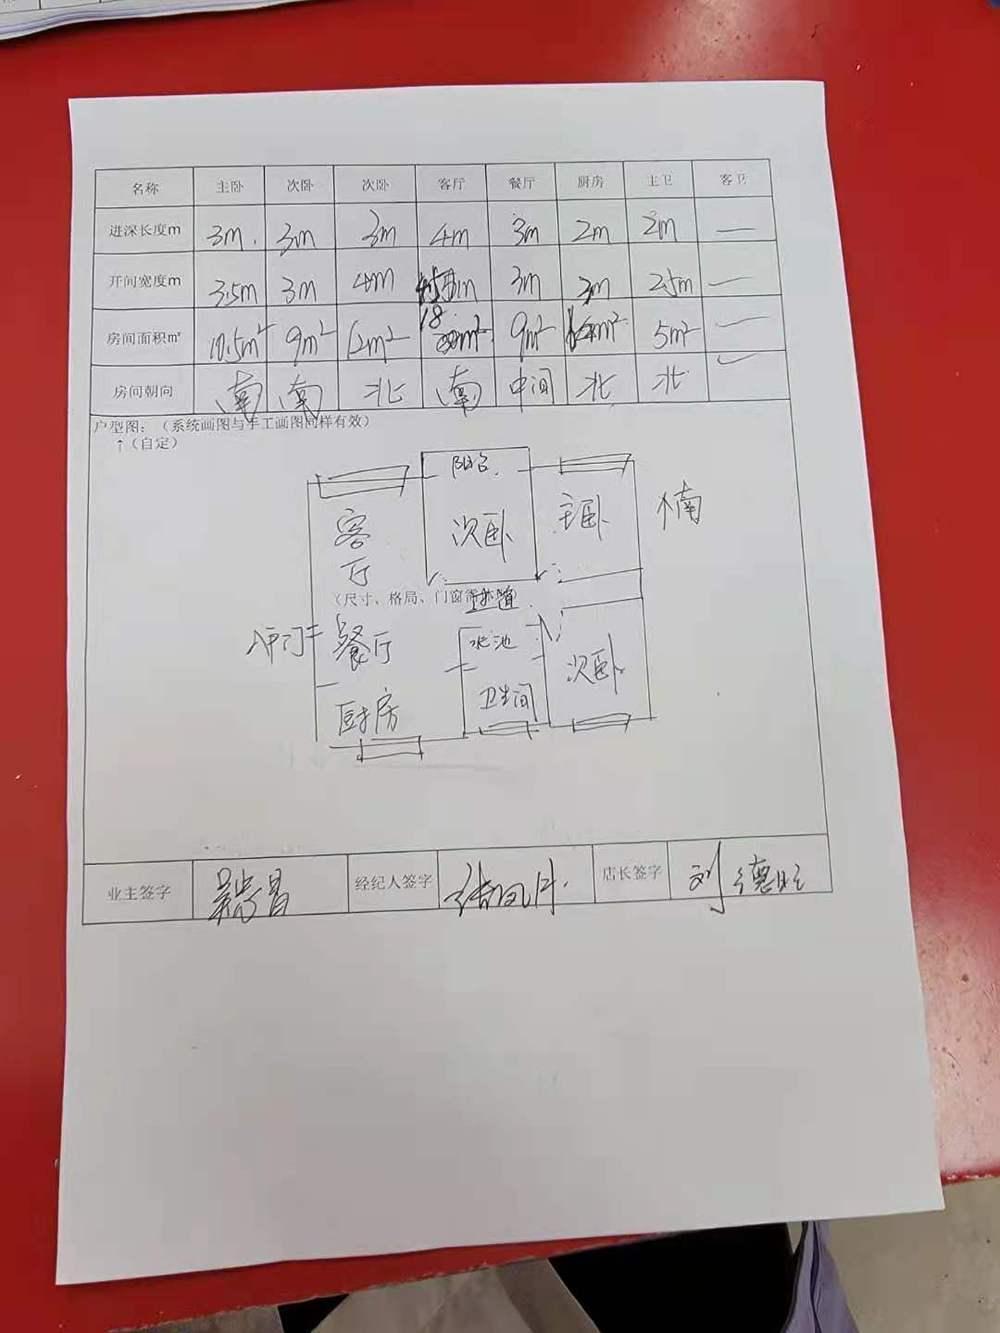 名称 主卧 次卧 次卧 客厅 餐厅 厨房 主卫 客卫
进深长度m 3m. 3m 3m 4m 3m 2m 2m —
开间宽度m 3.5m 3m 4m 3m 2.5m —
房间面积㎡ 10.5m² 9m² 12m² 18 m² 9m² 5m² —
房间朝向 南 南 北 南 中间 北 北
户型图：（系统画图与手工画图同样有效）
↑（自定）
阳台
客厅 次卧 主卧 南
（尺寸、格局、门窗
过道
入户门 餐厅 水池
次卧
厨房 卫生间
业主签字 经纪人签字 店长签字 刘德旺